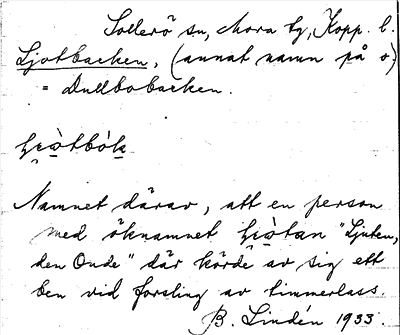 Sollerö sn, Mora tg, Kopp. l.
Ljotbacken, (annat namn på o)
= Dullbobacken.
Namnet därav, att en person
med öknamnet "Ljuten,
den Onde" där körde av sig ett
ben vid forsling av timmerlass.
B. Lindén 1933